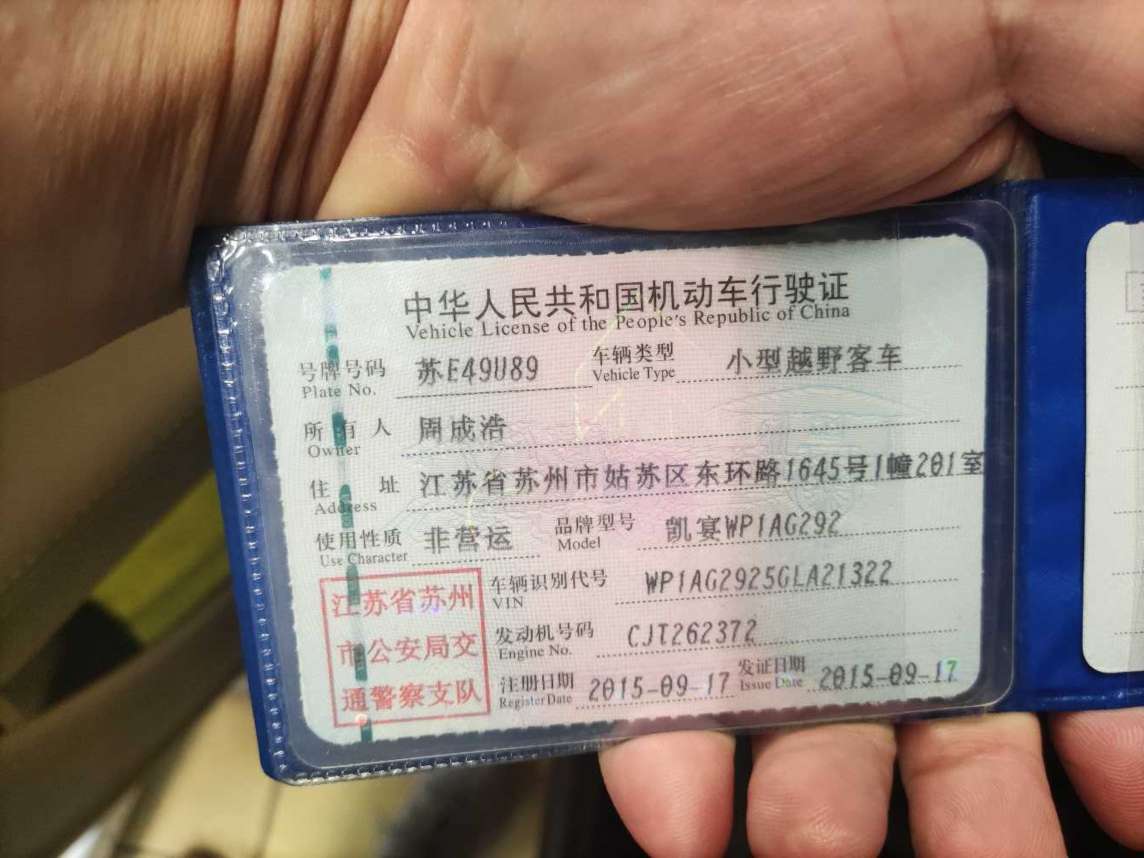 中华人民共和国机动车行驶证
Vehicle License of the People's Republic of China
号牌号码 苏E49U89 车辆类型 小型越野客车
Plate No. Vehicle Type
所有人 周成浩
Owner
住址 江苏省苏州市姑苏区东环路1645号1幢201室
Address
使用性质 非营运 品牌型号 凯宴WP1AG292
Use Character Model
江苏省苏州
市公安局交
通警察支队
车辆识别代号 WP1AG2925GLA21322
VIN
发动机号码 CJT262372
Engine No.
注册日期 2015-09-17 发证日期 2015-09-17
Register Date Issue Date